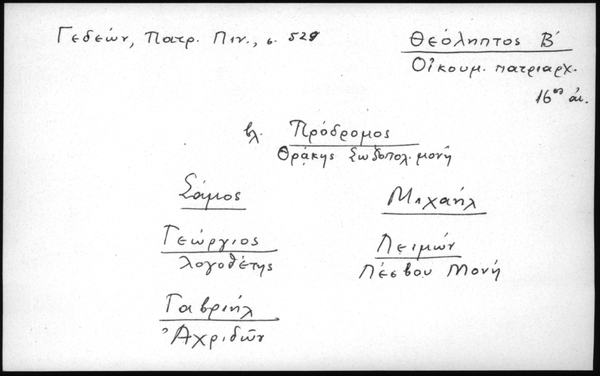 Γεδεών, Πατρ. Πιν., σ. 529
Θεόληπτος Β΄
Οἰκουμ. πατριαρχ.
16ος αἰ.
βλ. Πρόδρομος
Θράκης Σωζοπολ. μονή
Σάμος
Μιχαήλ
Γεώργιος
λογοθέτης
Λειμών
Λέσβου Μονή
Γαβριήλ
Ἀχριδῶν